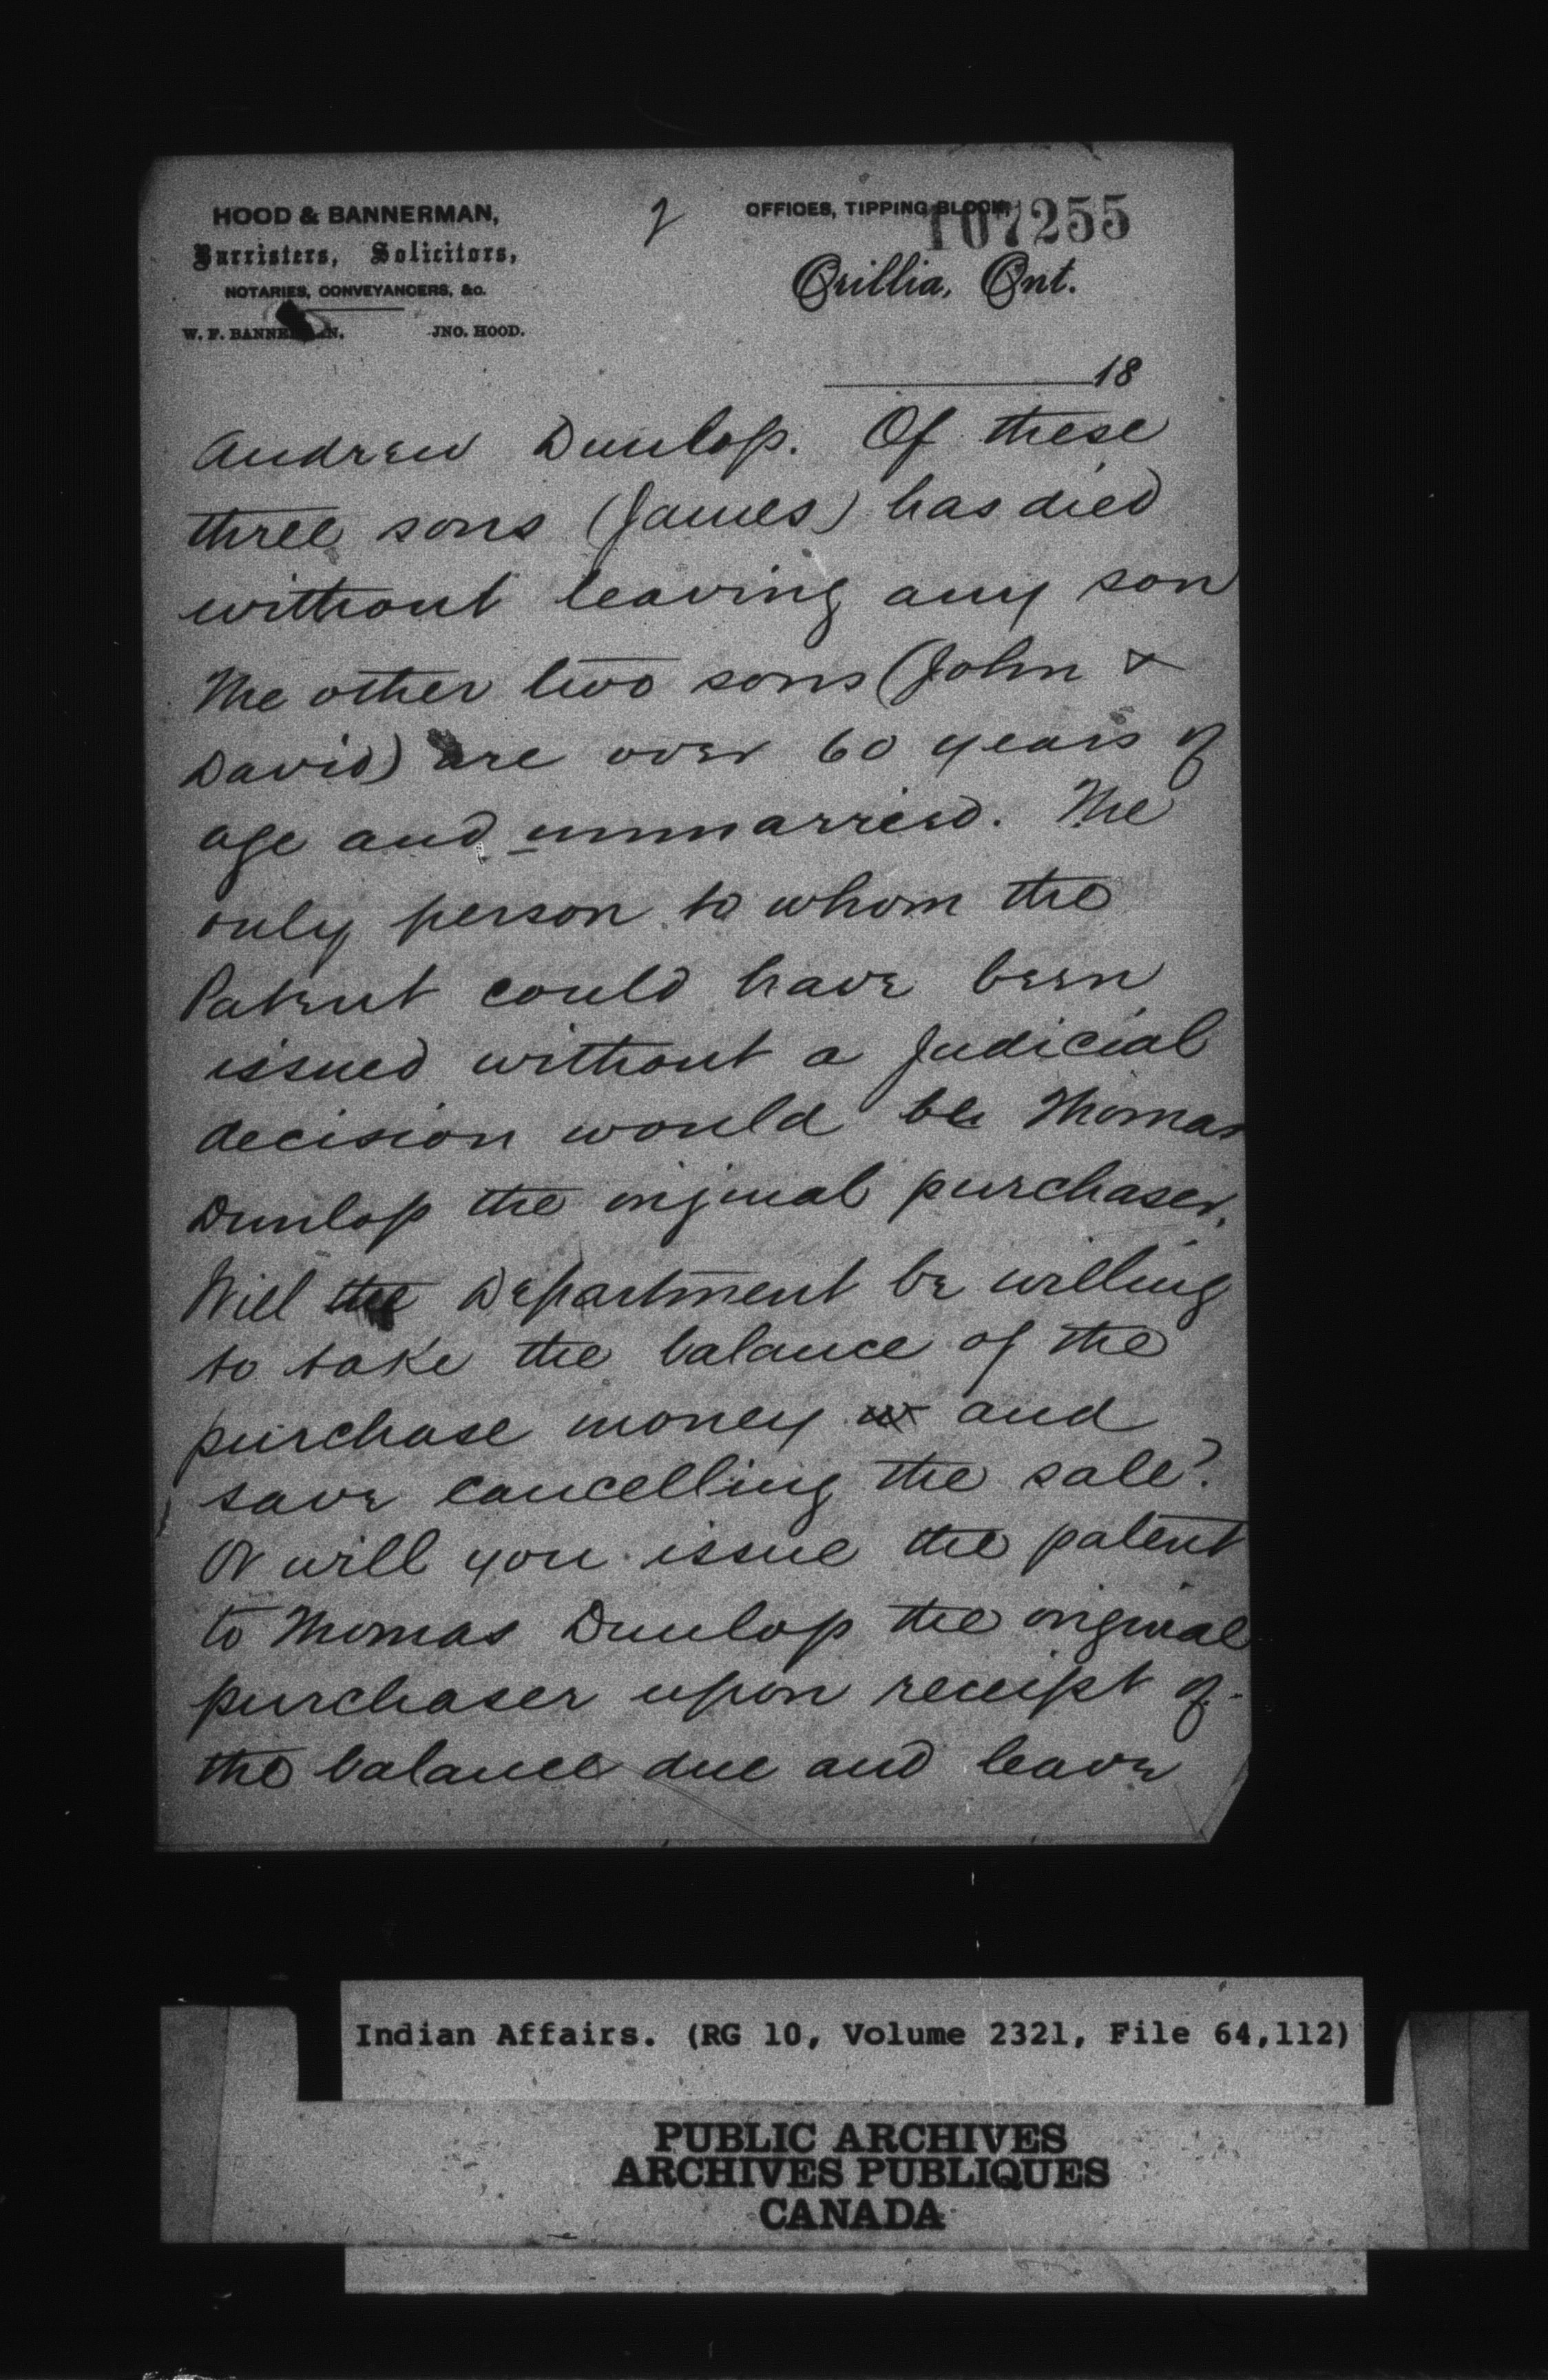 HOOD & BANNERMAN,
Barristers, Solicitors,
NOTARIES, CONVEYANCERS, &c.
W. F. BANNERMAN. JNO. HOOD.
2
OFFICES, TIPPING BLOCK,
107255
Orillia, Ont.
18
Andrew Dunlop. Of these
three sons (James) has died
without leaving any son
The other two sons (John &
David) are over 60 years of
age and unmarried. The
only person to whom the
Patent could have been
issued without a Judicial
decision would be Thomas
Dunlop the original purchaser.
Will the Department be willing
to take the balance of the
purchase money and
save cancelling the sale?
Or will you issue the patent
to Thomas Dunlop the original
purchaser upon receipt of
the balance due and leave
Indian Affairs. (RG 10, Volume 2321, File 64,112)
PUBLIC ARCHIVES
ARCHIVES PUBLIQUES
CANADA